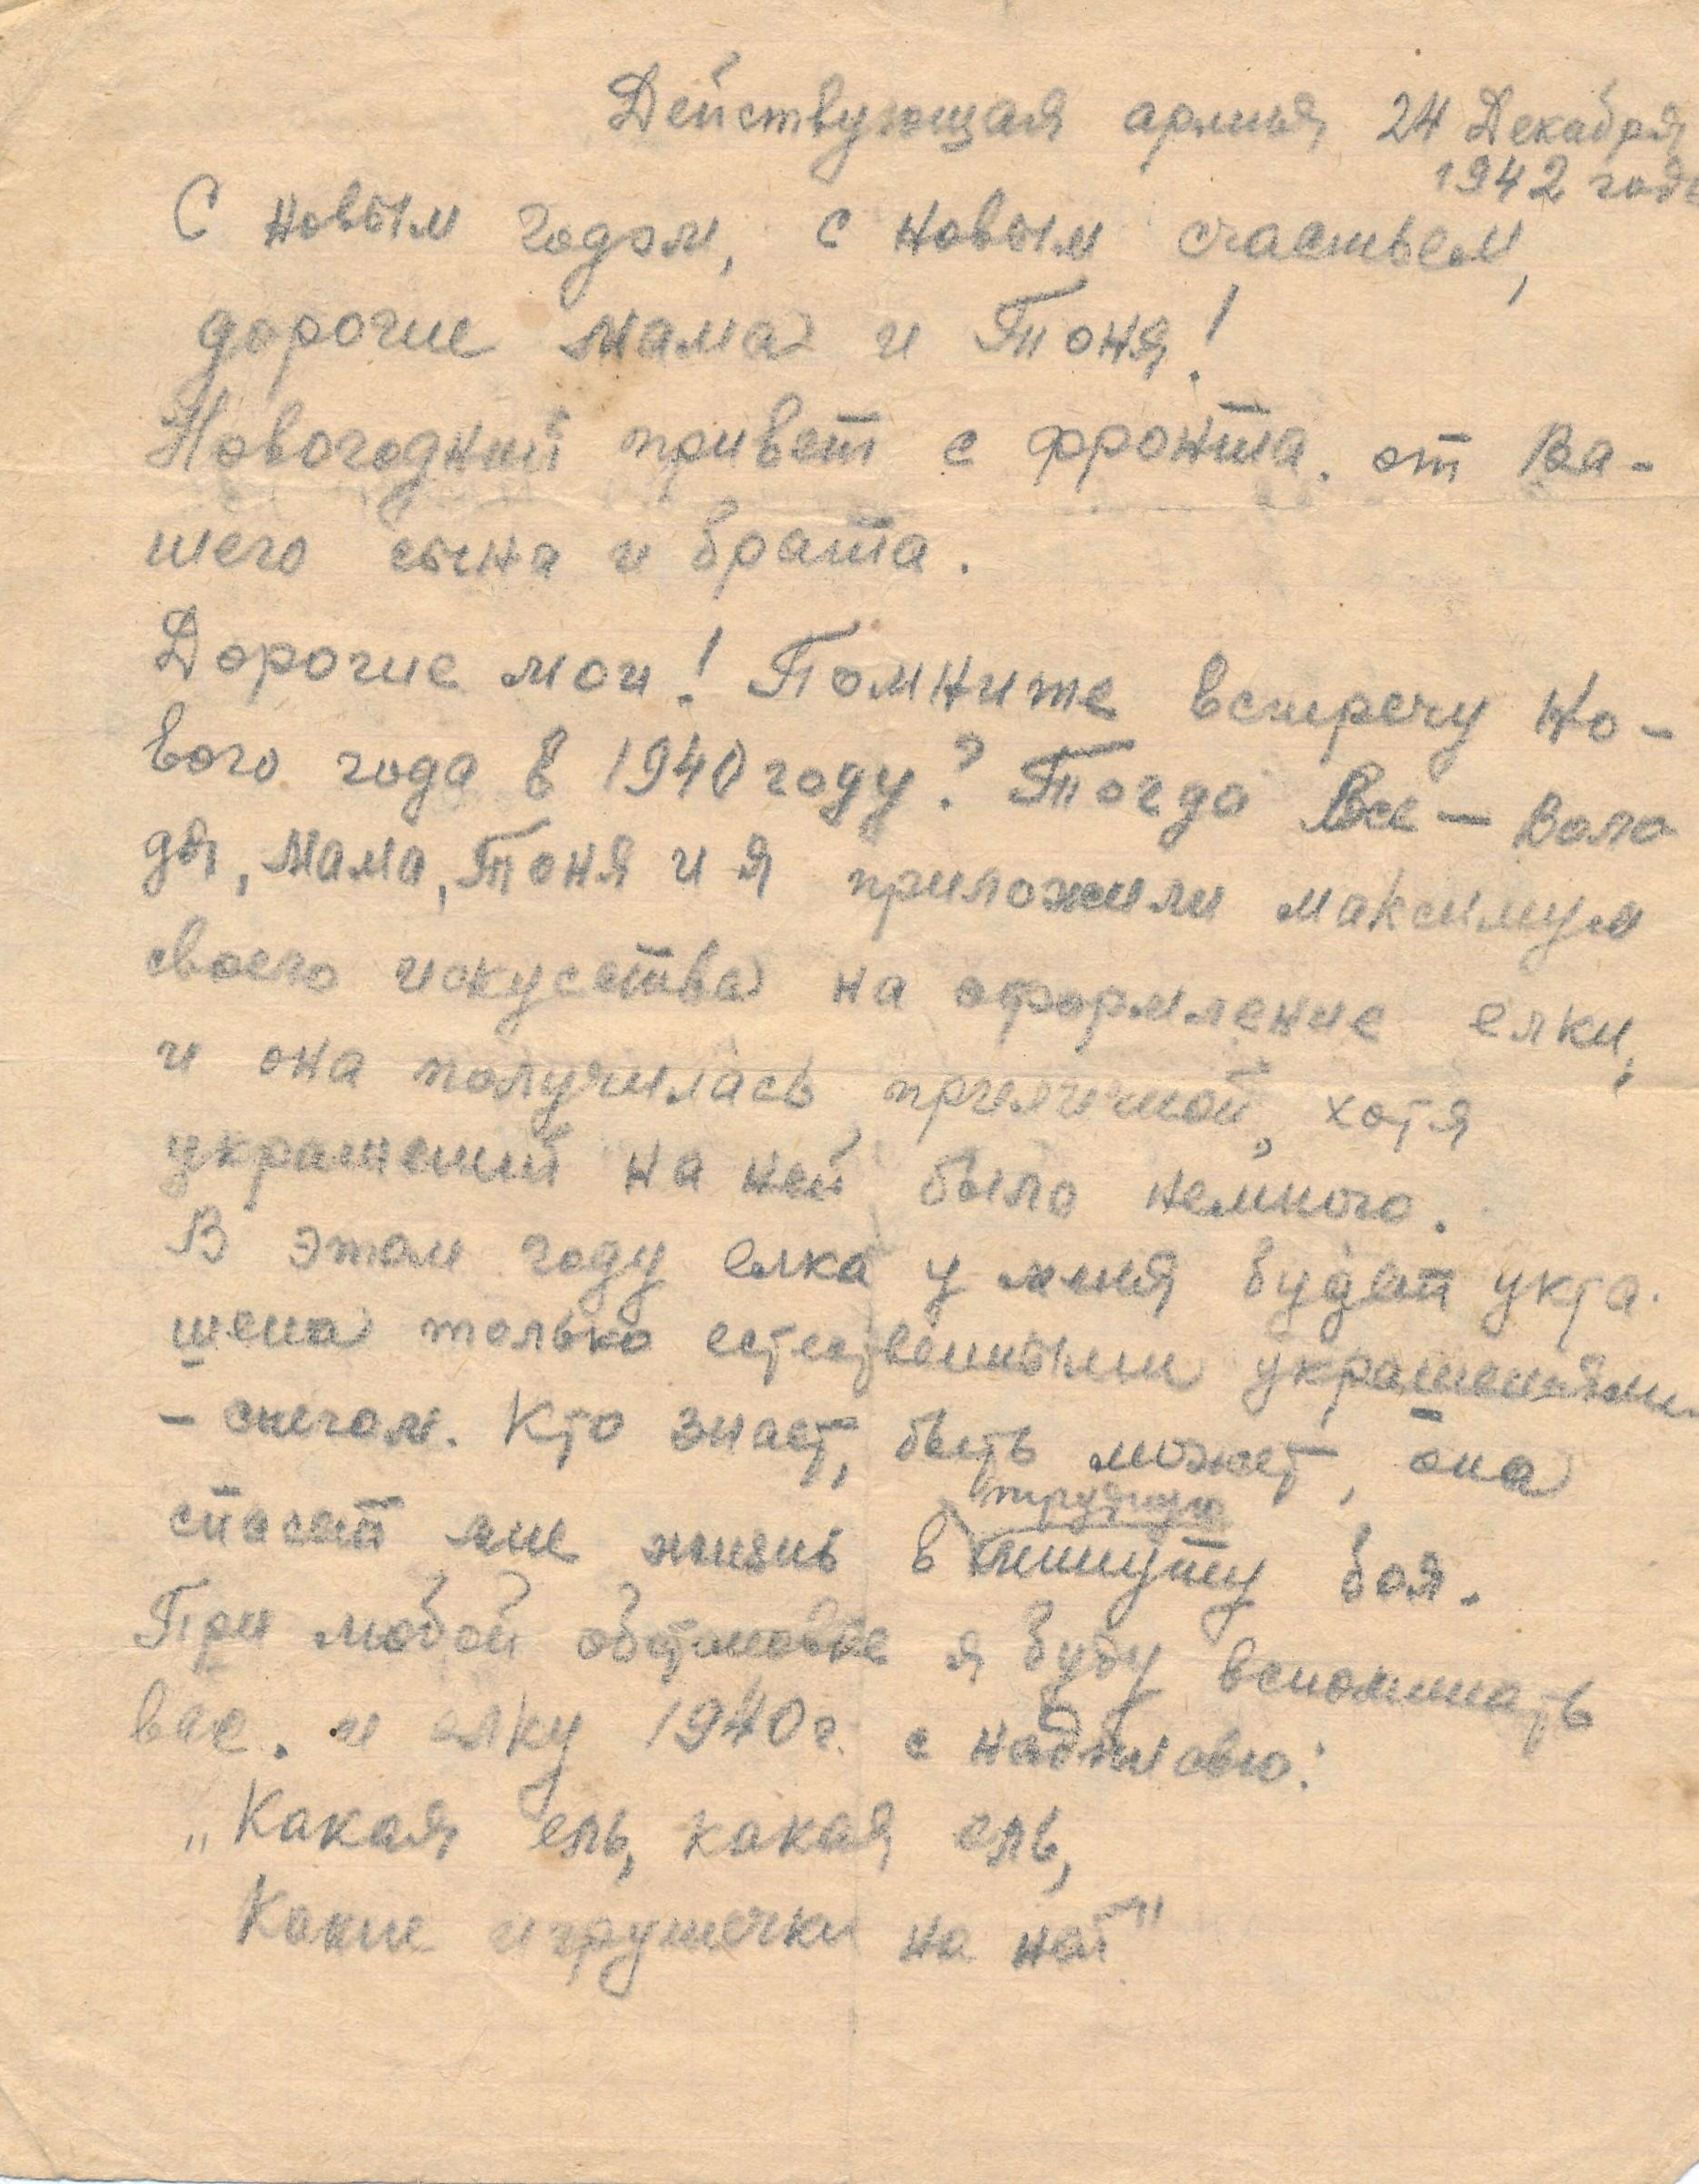 Действующая армия 24 Декабря
1942 года
С новым годом, с новым счастьем,
дорогие мама и Тоня!
Новогодний привет с фронта. от Ва-
шего сына и брата.
Дорогие мои! Помните встречу Но-
вого года в 1940 году? Тогда Все — Воло
дя, Мама, Тоня и я приложили максимум
своего искусства на оформление елки,
и она получилась приличной, хотя
украшений на ней было немного.
В этом году елка у меня будет укра-
шена только естественными украшениями
– снегом. Кто знает, быть может, она
трудную
спасет мне жизнь в минуту боя.
При любой обстановке я буду вспоминать
вас. и елку 1940 г. с надписью:
„Какая ель, какая ель,
Какие игрушечки на ней"